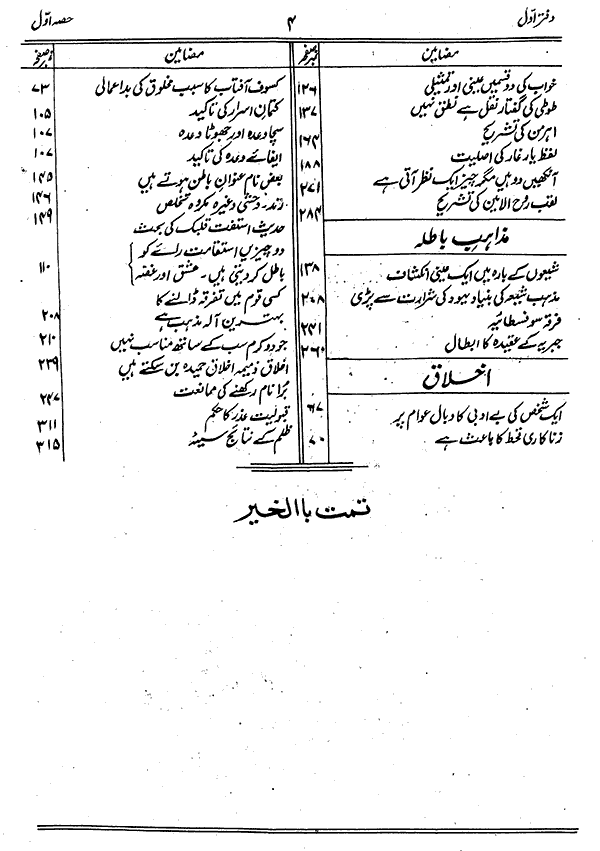 دفتر اوّل ۴ حصہ اوّل
مضامین نمبر صفحہ
خواب کی دو قسمیں عینی اور تمثیلی ۱۲۶
طوطی کی گفتار نقل ہے نطق نہیں ۱۳۷
اہرمن کی تشریح ۱۶۴
لفظ یار غار کی اصلیت ۱۸۸
آنکھیں دو ہیں مگر چیز ایک نظر آتی ہے ۲۷۱
لقب روح الامین کی تشریح ۲۸۴
مذاہب باطلہ
شیعوں کے بارہ میں ایک عینی انکشاف ۱۳۸
مذہب شیعہ کی بنیاد یہود کی شرارت سے پڑی ۲۰۸
فرقہ سوفسطائیہ ۲۴۱
جبریہ کے عقیدہ کا ابطال ۲۶۰
اخلاق
ایک شخص کی بے ادبی کا وبال عوام پر ۶۷
زناکاری قحط کا باعث ہے ۷۰
مضامین نمبر صفحہ
کسوف آفتاب کا سبب مخلوق کی بداعمالی ۷۳
کتمان اسرار کی تاکید ۱۰۵
سچا وعدہ اور جھوٹا وعدہ ۱۰۷
ایفائے وعدہ کی تاکید ۱۰۷
بعض نام عنوان باطن ہوتے ہیں ۱۴۵
رند۔ وحشی وغیرہ مکروہ تخلص ۱۴۶
حدیث استفت قلبک کی بحث ۱۴۹
دو چیزیں استقامت رائے کو
باطل کر دیتی ہیں۔ عشق اور غصہ ۱۱۰
کسی قوم میں تفرقہ ڈالنے کا
بہترین آلہ مذہب ہے ۲۰۸
جود و کرم سب کے ساتھ مناسب نہیں ۲۱۰
اخلاق ذمیمہ اخلاق حمیدہ بن سکتے ہیں ۲۳۹
برا نام رکھنے کی ممانعت ۲۴۷
قبولیت عذر کا حکم ۳۱۱
ظلم کے نتائج سیئہ ۳۱۵
تمت باالخیر